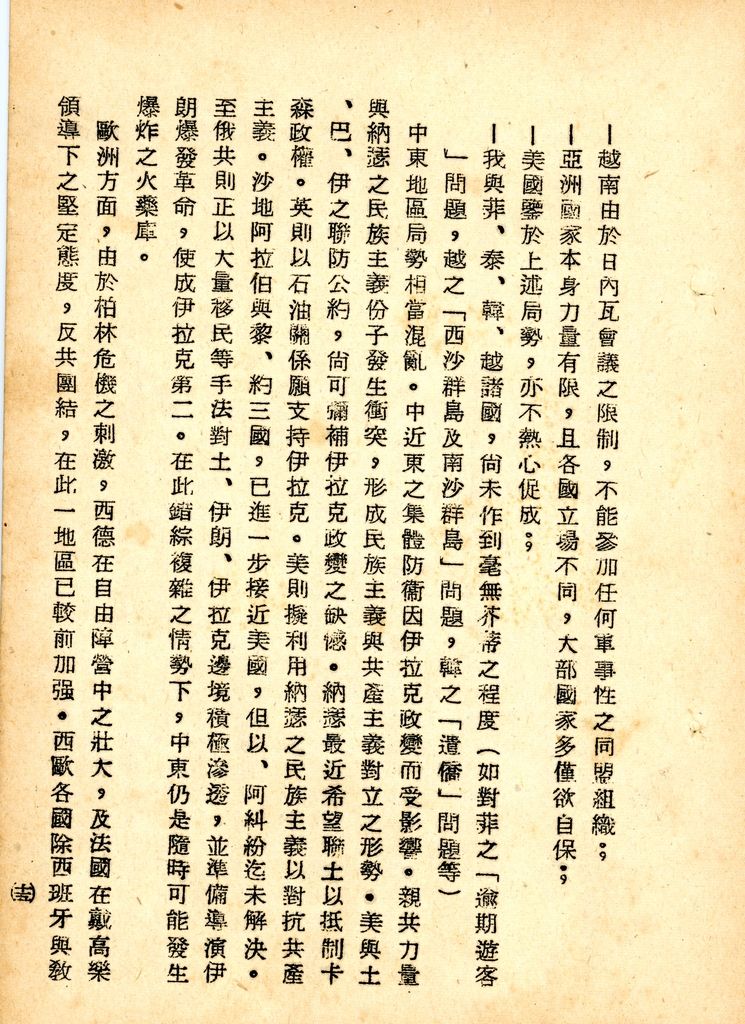 －越南由於日內瓦會議之限制，不能參加任何軍事性之同盟組織；
－亞洲國家本身力量有限，且各國立場不同，大部國家多僅欲自保；
－美國鑒於上述局勢，亦不熱心促成；
－我與菲、泰、韓、越諸國，尚未作到毫無芥蒂之程度（如對菲之「逾期遊客
」問題，越之「西沙群島及南沙群島」問題，韓之「遣僑」問題等）
中東地區局勢相當混亂。中近東之集體防衛因伊拉克政變而受影響。親共力量
與納瑟之民族主義份子發生衝突，形成民族主義與共產主義對立之形勢。美與土
、巴、伊之聯防公約，尚可彌補伊拉克政變之缺憾。納瑟最近希望聯土以抵制卡
森政權。英則以石油關係願支持伊拉克。美則擬利用納瑟之民族主義以對抗共產
主義。沙地阿拉伯與黎、約三國，已進一步接近美國，但以、阿糾紛迄未解決。
至俄共則正以大量移民等手法對土、伊朗、伊拉克邊境積極滲透，並準備導演伊
朗爆發革命，使成伊拉克第二。在此錯綜複雜之情勢下，中東仍是隨時可能發生
爆炸之火藥庫。
歐洲方面，由於柏林危機之刺激，西德在自由陣營中之壯大，及法國在戴高樂
領導下之堅定態度，反共團結，在此一地區已較前加强。西歐各國除西班牙與敎